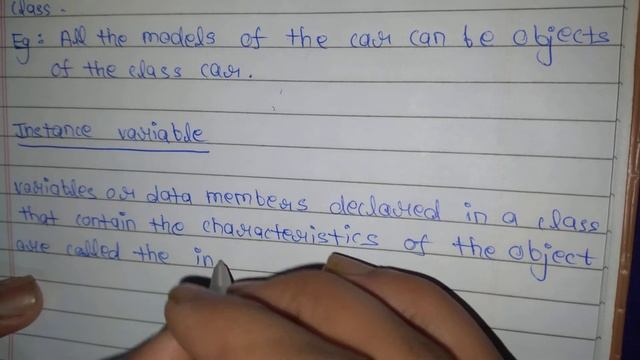 class.
Eg: All the models of the car can be objects
of the class car.
Instance variable
variables or data members declared in a class
that contain the characteristics of the object
are called the in